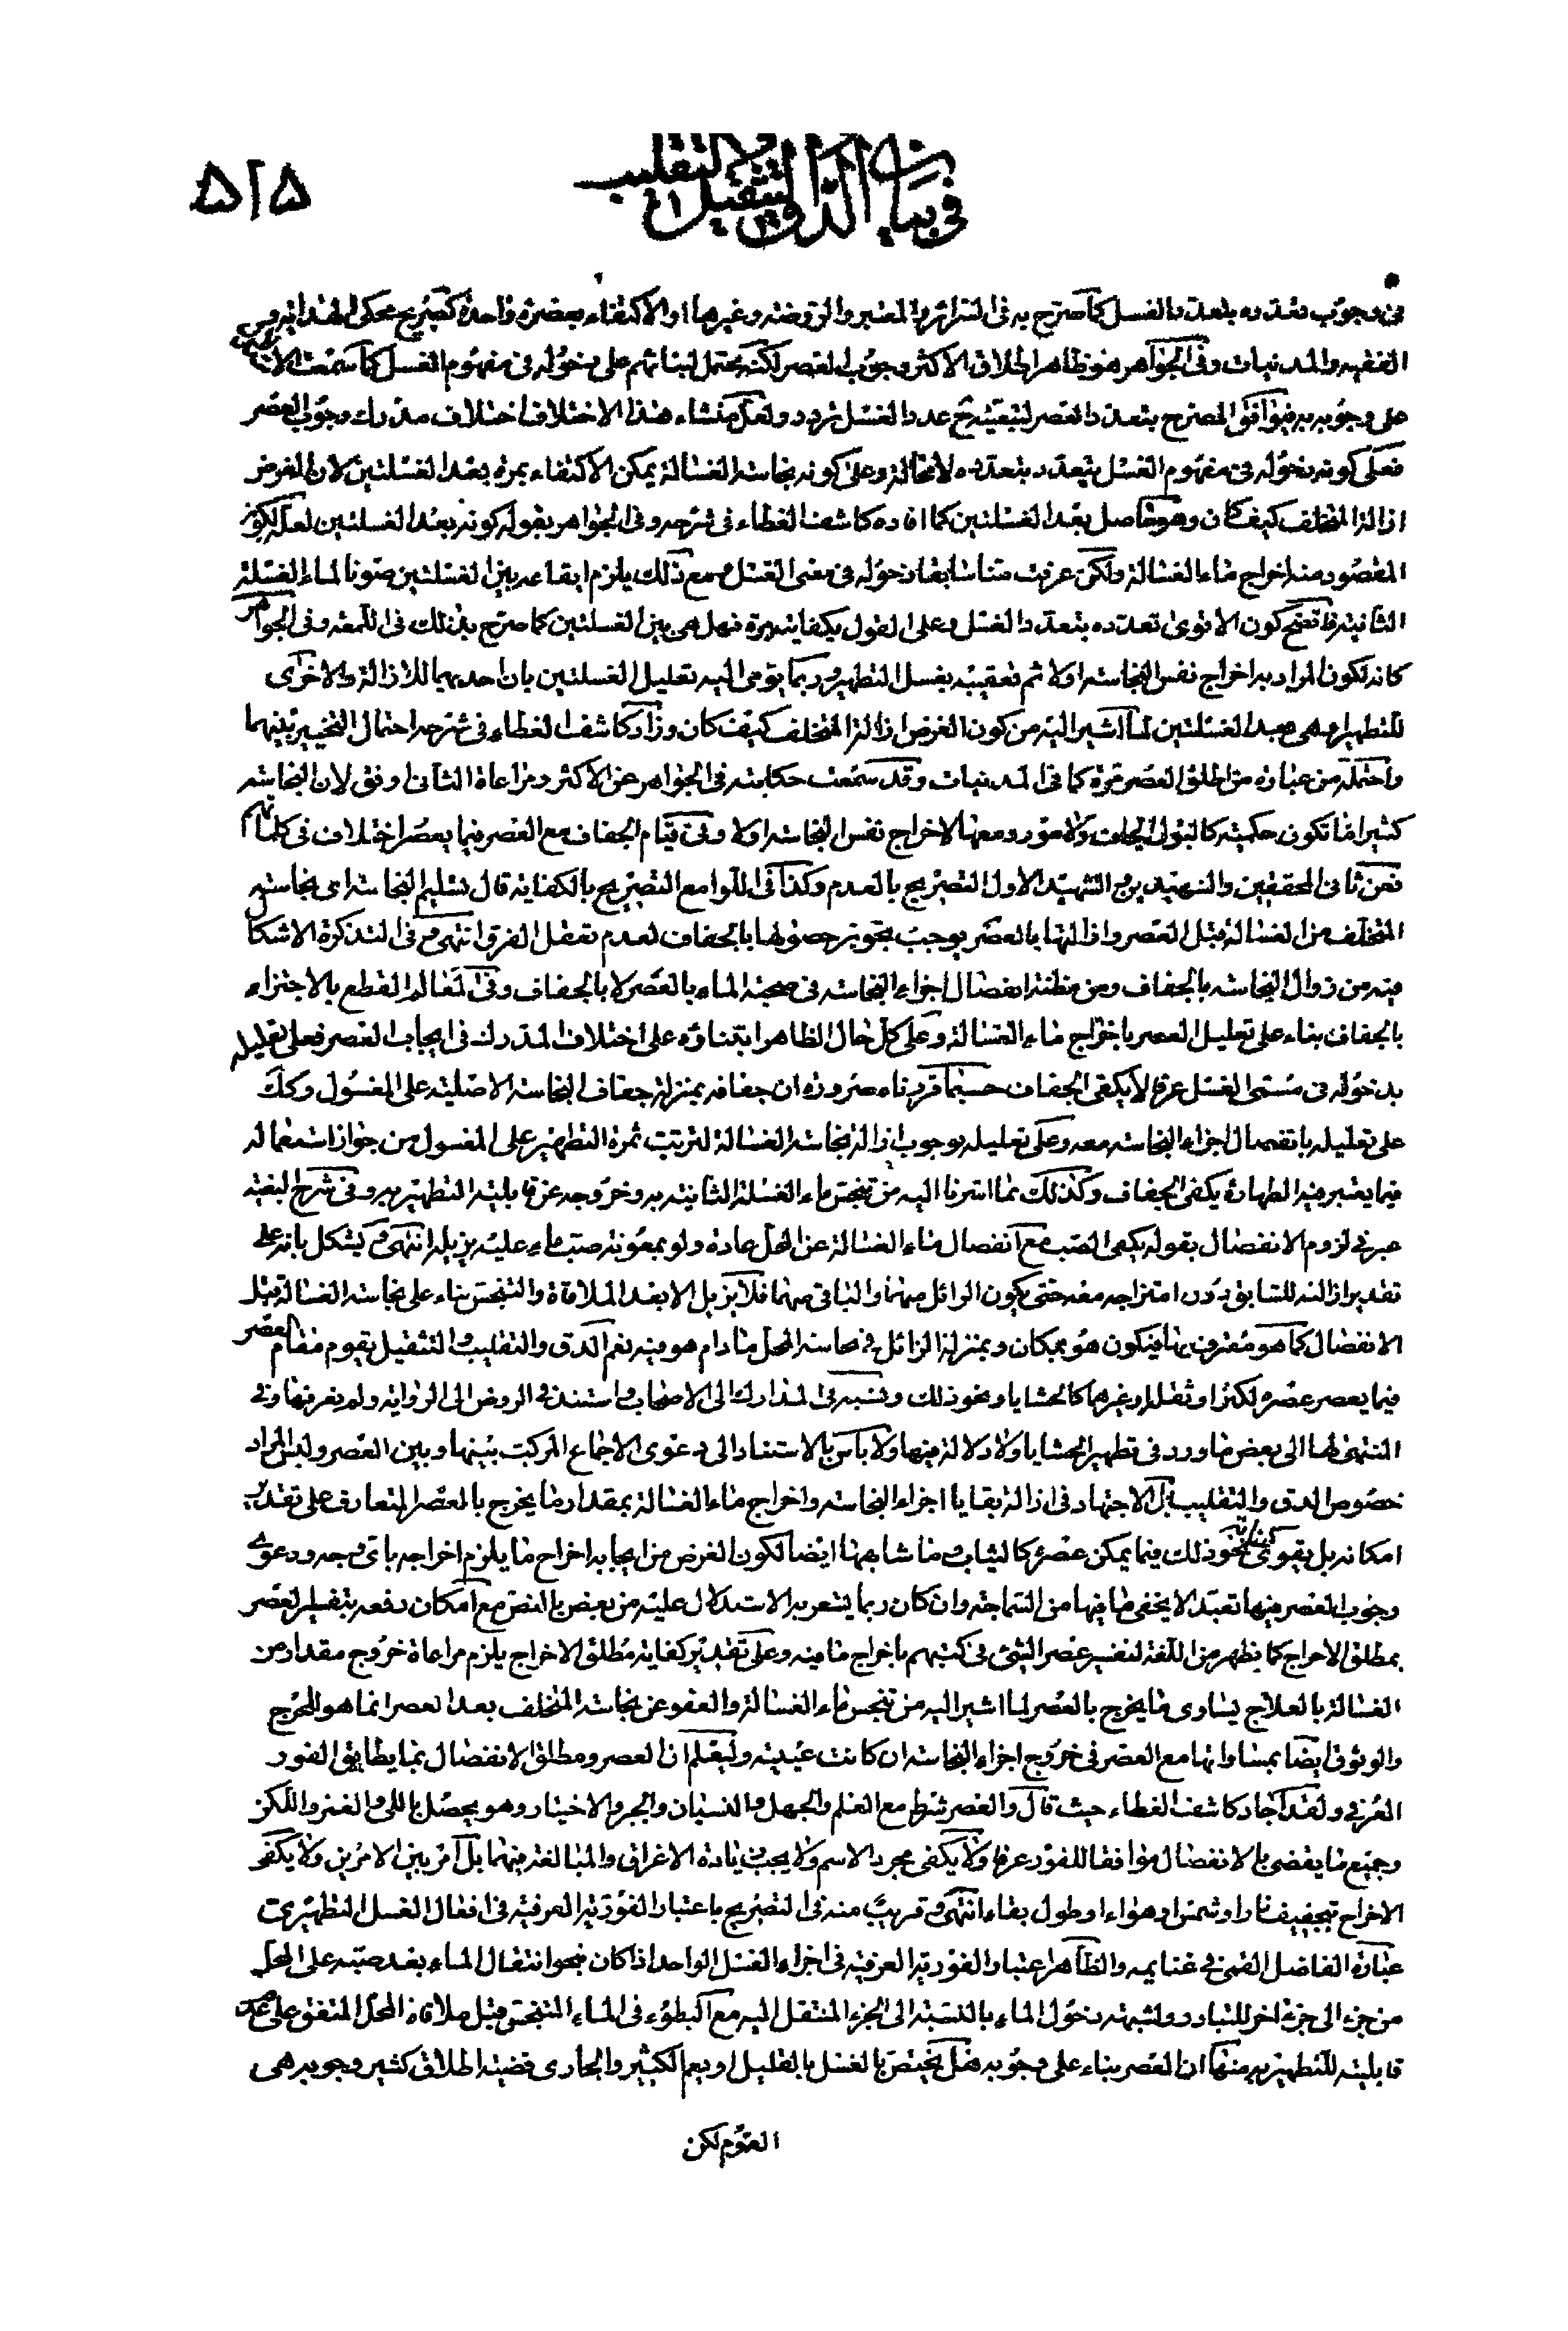 في بيان الدق والتثقيل والتقليب
۵۱۵
في وجوب تعدده بتعدد الغسل كما صرح به في السرائر والمعتبر والروضة وغيرها او الاكتفاء بعصرة واحدة كصريح محكي الهداية
الفقيه والمدنيات وفي الجواهر هو ظاهر اطلاق الاكثر وجوب العصر لكنه يحتمل لبنائهم على دخوله في مفهوم الغسل كما سمعت
على وجوبه به فيوافق المصرح بتعدد العصر لتبعيته ح عدد الغسل تردد ولعل منشاء هذا الاختلاف اختلاف مدرك وجوب العصر
فعلى كونه دخوله في مفهوم الغسل يتعدد بتعدده لا محالة وعلى كونه نجاسة الغسالة يمكن الاكتفاء بمرة بعد الغسلتين لان الغرض
ازالة المتخلف كيف كان وهو حاصل بعد الغسلتين كما افاده كاشف الغطاء في شرحه وفي الجواهر بقوله كونه بعد الغسلتين لعله لكون
المقصود منه اخراج ماء الغسالة ولكن عرفت منا سابقا دخوله في معنى الغسل ومع ذلك يلزم ايقاعه بين الغسلتين صونا لماء الغسلة
الثانية فاتضح كون الاقوى تعدده بتعدد الغسل وعلى القول بكفاية مرة فهل هي بين الغسلتين كما صرح بذلك في اللمعة وفي الجواهر
كانه لكون المراد به اخراج نفس النجاسة اولا ثم تعقيبه بغسل التطهير وربما يومي اليه تعليل الغسلتين بان احدهما للازالة والاخرى
للتطهير او هي بعد الغسلتين لما اشير اليه من كون الغرض ازالة المتخلف كيف كان وزاد كاشف الغطاء في شرحه احتمال التخيير بينهما
واحتمله من عبارة من اطلق العصر مرة كما في المدنيات وقد سمعت حكايته في الجواهر عن الاكثر ومراعاة الثاني اوفق لان النجاسة
كثيرا ما تكون حكمية كالبول الجاف ولا مورد معها لاخراج نفس النجاسة اولا وفي قيام الجفاف مع العصر فيما يعصر اختلاف في كلماتهم
فعن ثاني المحققين والشهيدين والشهيد الاول التصريح بالعدم وكذا في اللوامع التصريح بالكفاية قال تسليم النجاسة اي نجاسة
المتخلف من الغسالة قبل العصر وازالتها بالعصر يوجب تجويز حصولها بالجفاف لعدم تعقل الفرق انتهى وفي التذكرة الاشكال
فيه من زوال النجاسة بالجفاف ومن مظنة انفصال اجزاء النجاسة في صحبة الماء بالعصر لا بالجفاف وفي المعالم القطع بالاجتزاء
بالجفاف بناء على تعليل العصر باخراج ماء الغسالة وعلى كل حال الظاهر ابتناؤه على اختلاف المدرك في ايجاب العصر فعلى تعليله
بدخوله في مسمى الغسل عرفا لا يكفي الجفاف حسبما قررناه ضرورة ان جفافه بمنزلة جفاف النجاسة الاصلية على المغسول وكك
على تعليله بانفصال اجزاء النجاسة معه وعلى تعليله بوجوب ازالة نجاسة الغسالة لترتيب ثمرة التطهير على المغسول من جواز استعماله
فيما يعتبر فيه الطهارة يكفي الجفاف وكذلك لما اشرنا اليه من تنجس ماء الغسلة الثانية به وخروجه عن قابلية التطهير به وفي شرح البغية
عبر في لزوم الانفصال بقوله يكفي الصب مع انفصال ماء الغسالة عن المحل عادة ولو بمعونة صب ماء عليه يزيله انتهى ويشكل بانه على
تقدير ازالته للسابق بدون امتزاجه معه حتى يكون الزائل منهما والباقي منهما فلا يزيل الا بعد الملاقاة والتنجس بناء على نجاسة الغسالة قبل
الانفصال كما هو معترف بها فيكون هو بمكان وبمنزلة الزائل في نجاسة المحل ما دام هو فيه نعم الدق والتقليب والتثقيل يقوم مقام العصر
فيما يعسر عصره لكثرة او ثقله او غيرهما كالحشايا ونحو ذلك ونسبه في المدارك الى الاصحاب واستند في الروض الى الرواية ولم نعرفها وفي
المنتهى لها الى بعض ما ورد في تطهير الحشايا ولا دلالة فيها ولا باس بالاستناد الى دعوى الاجماع المركب بينها وبين العصر وليس المراد
خصوص الدق والتقليب بل الاجتهاد في ازالة بقايا اجزاء النجاسة واخراج ماء الغسالة بمقدار ما يخرج بالعصر المتعارف على تقدير
امكانه بل يقوى كفاية نحو ذلك فيما يمكن عصره كالثياب وما شابهها ايضا لكون الغرض من ايجابه اخراج ما يلزم اخراجه باي وجه ودعوى
وجوب العصر فيها تعبدا لا يخفى ما فيها من السماجة وان كان ربما يشعر به الاستدلال عليه من بعض بالنص مع امكان دفعه بتفسير العصر
بمطلق الاخراج كما يظهر من اللغة لتفسير عصر الشئ في كتبهم باخراج ما فيه وعلى تقدير كفاية مطلق الاخراج يلزم مراعاة خروج مقدار من
الغسالة بالعلاج يساوي ما يخرج بالعصر لما اشير اليه من تنجس ماء الغسالة والعفو عن نجاسة المتخلف بعد العصر انما هو للحرج
والوثوق ايضا بمساواتها مع العصر في خروج اجزاء النجاسة ان كانت عينية وليعلم ان العصر ومطلق الانفصال بما يطابق الفور
العرفي ولقد اجاد كاشف الغطاء حيث قال والعصر شرط مع العلم والجهل والنسيان والجبر والاختيار وهو يحصل باللي والغمز واللكز
وجميع ما يفضي بالانفصال موافقا للفور عرفا ولا يكفي مجرد الاسم ولا يجب زيادة الاغراق والمبالغة فيهما بل امر بين الامرين ولا يكفي
الاخراج بتجفيف نار او شمس او هواء او طول بقاء انتهى وقريب منه في التصريح باعتبار الفورية العرفية في افعال الغسل التطهيري
عبارة الفاضل القمي في غنايمه والظاهر اعتبار الفورية العرفية في اجزاء الغسل الواحد اذا كان نحو انتقال الماء بعد صبه على المحل
من جزء الى جزء اخر للتبادر ولشبهة دخول الماء بالنسبة الى الجزء المنتقل اليه مع البطوء في الماء المتنجس قبل ملاقاة المحل المتفق على عدم
قابليته للتطهير به منها ان العصر بناء على وجوبه هل يختص بالغسل بالقليل او يعم الكثير والجاري قضية اطلاق كثير وجوبه هي
العموم لكن